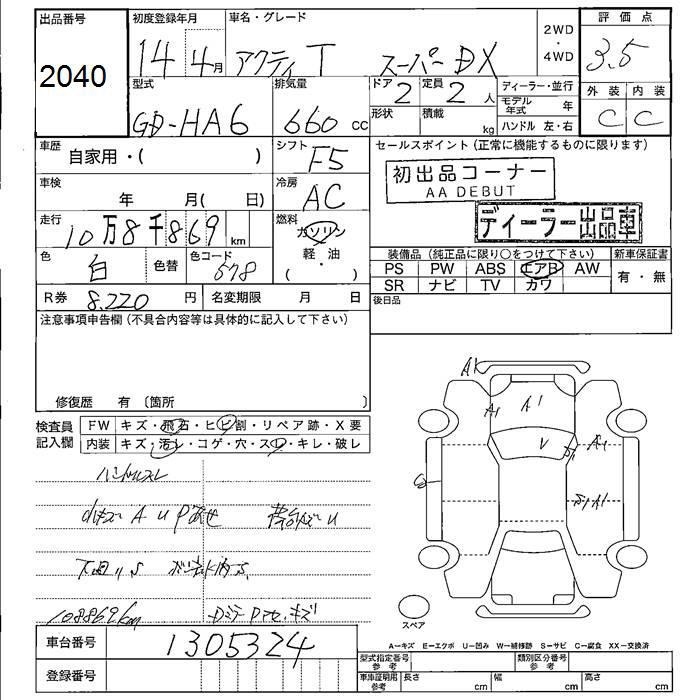 出品番号 初度登録年月 車名・グレード 2WD・4WD 評価点
2040 14 4月 アクティ T スーパーDX 3.5
型式 排気量 ドア 定員 ディーラー・並行 外装 内装
GD-HA6 660 cc 2 2 人 モデル年式 年 C C
形状 積載 kg ハンドル 左・右
車歴 自家用・( ) シフト F5 セールスポイント(正常に機能するものに限ります)
初出品コーナー
AA DEBUT
車検 年 月( 日) 冷房 AC
ディーラー出品車
走行 10万8千869 km 燃料 ガソリン
軽・油
( )
色 白 色替 色コード 578
装備品(純正品に限り〇をつけて下さい) 新車保証書
PS PW ABS エアB AW 有・無
SR ナビ TV カワ
R券 8,220 円 名変期限 月 日 後日品
注意事項申告欄(不具合内容等は具体的に記入して下さい)
修復歴 有 〔箇所 〕
検査員記入欄 FW キズ・飛石・ヒビ割・リペア跡・X要
内装 キズ・汚レ・コゲ・穴・スレ・キレ・破レ
ハンドルスレ
A U P
108869km
A1
A1 A1
V A1
A1
スペア
A−キズ E−エクボ U−凹み W−補修跡 S−サビ C−腐食 XX−交換済
車台番号 1305324
型式指定番号 参考 類別区分番号 参考
登録番号
車庫証明用 参考 長さ cm 幅 cm 高さ cm